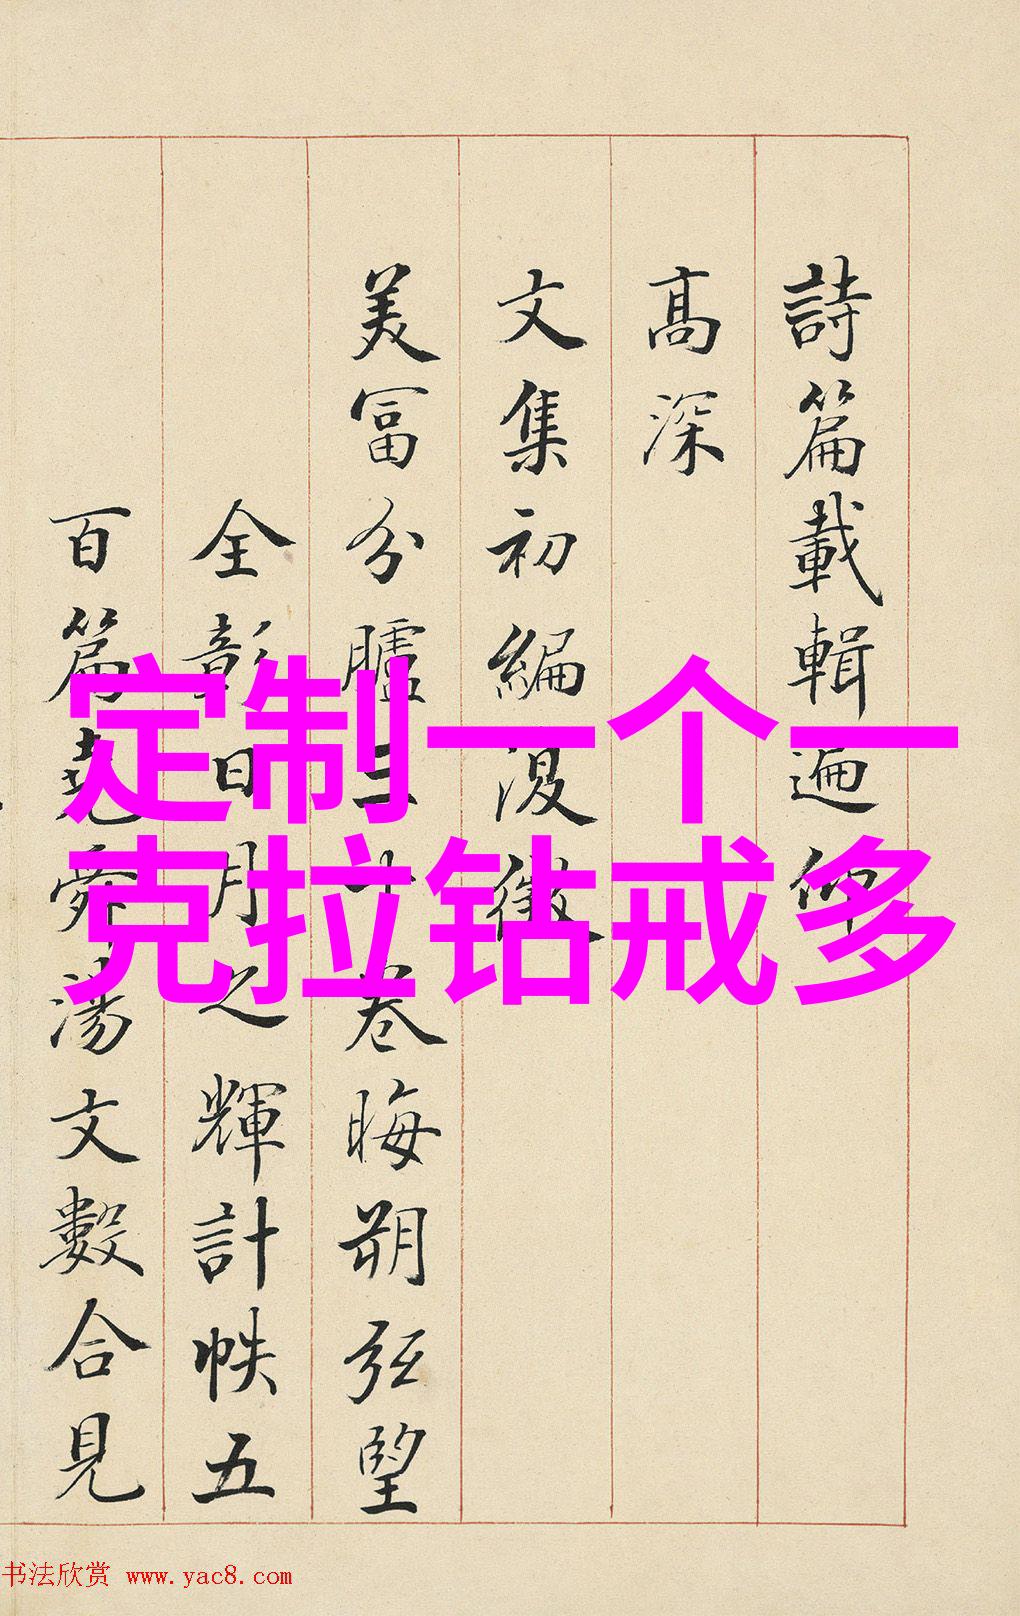 詩篇載輯遍仰
高深
文集初編復徵
美富分臚三十卷晦朔弦望
全彰日月之輝計帙五
百篇堯舜湯文數合見
定制一个一
克拉钻戒多
书法欣赏 www.yac8.com